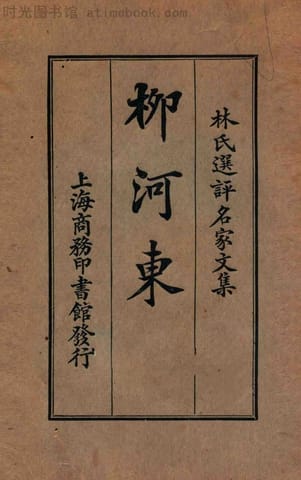 时光图书馆·www.atimebook.com
林氏選評名家文集
柳河東
上海商務印書館發行